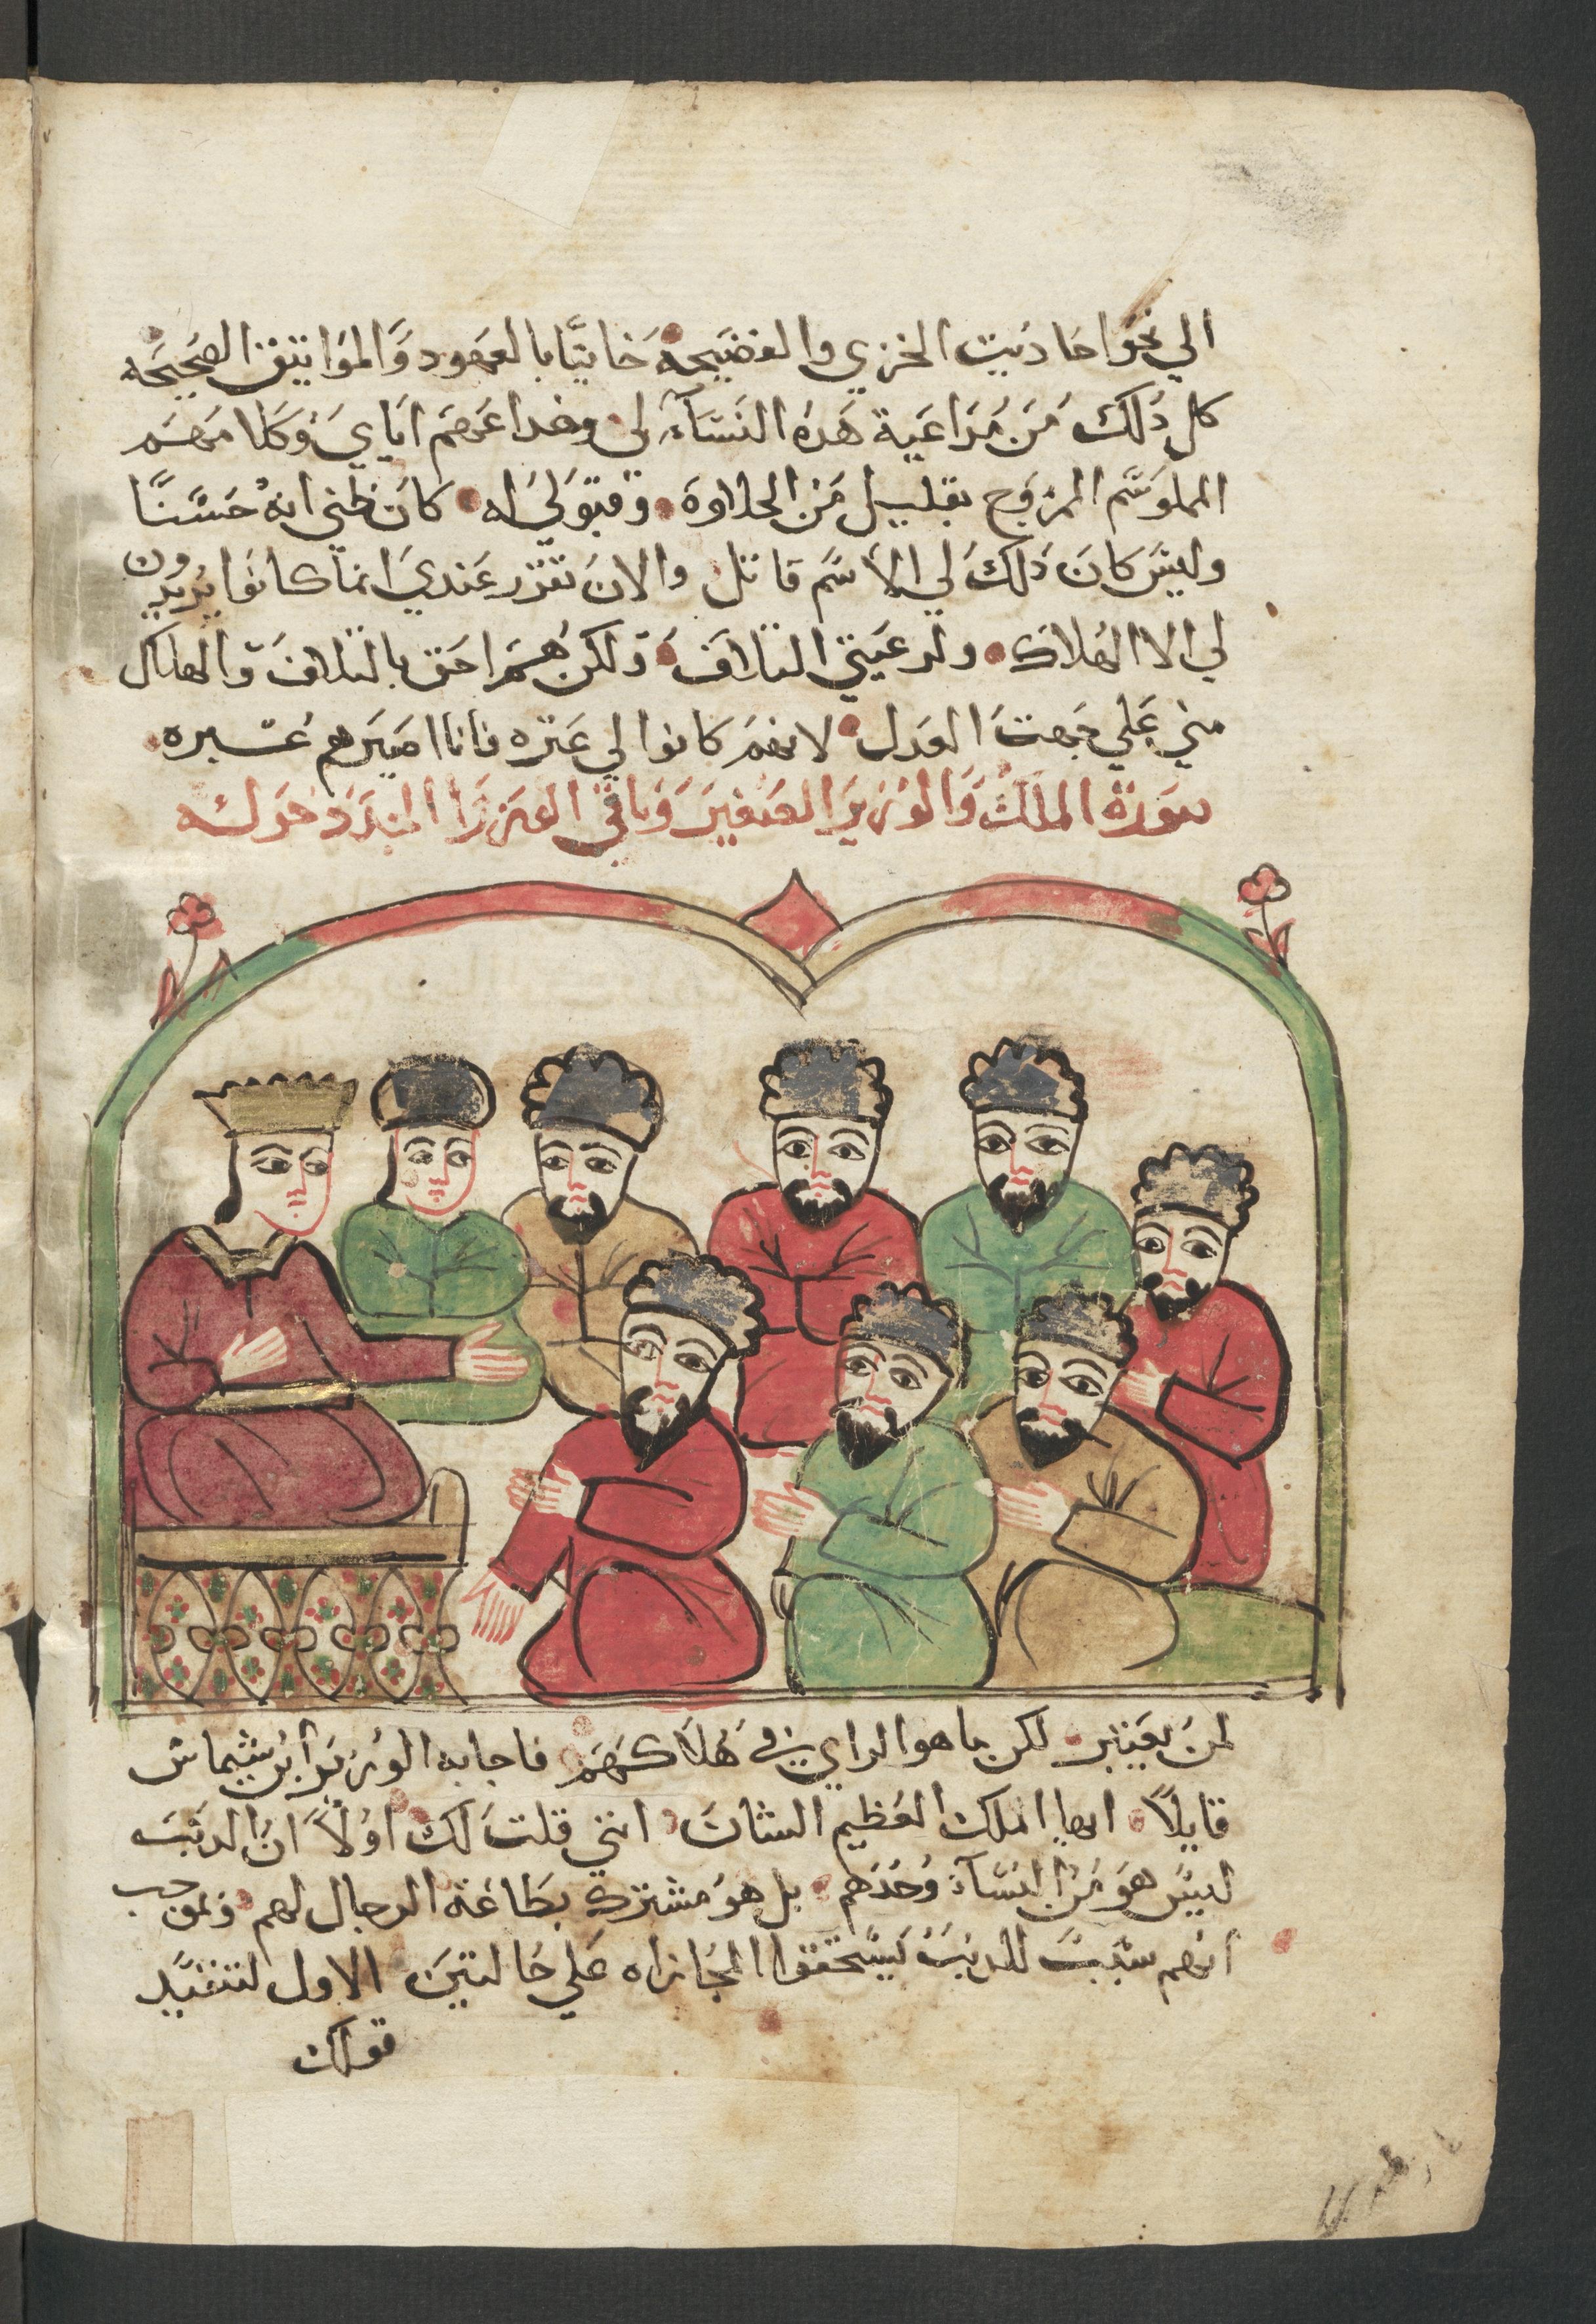 الي نحو احاديت الخزي والفضيحه خاينًا بالعهود والمواتيق الصحيحه
كل ذلك من مراعية هذه النسآء لي وخداعهم اياي وكلامهم
المملو سم الممزوج بقليل من الحلاوة وقبولي له كان ظني انه حسنًا
وليس كان ذلك لي الا سم قاتل والان تقرر عندي انما كانوا يريدون
لي الا الهلاك ولرعيتي التلاف ولكن هم احق بالتلاف والهلاك
مني علي جهت العدل لانهم كانوا لي عتره فانا اصيرهم عبره
صورة الملك والوزير الصغير وباقي الوزرا
لمن يعتبر لكن ما هو الراي في هلاكهم فاجابه الوزير ابن شيماش
قايلاً ايها الملك العظيم الشان انني قلت لك اولاً ان الدنب
ليس هو من النسآء وحدهم بل هو مشترك بطاعة الرجال لهم وبموجب
انهم سبب للدنب يستحقوا المجازاه علي حالتين الاول لتنفيد
قولك